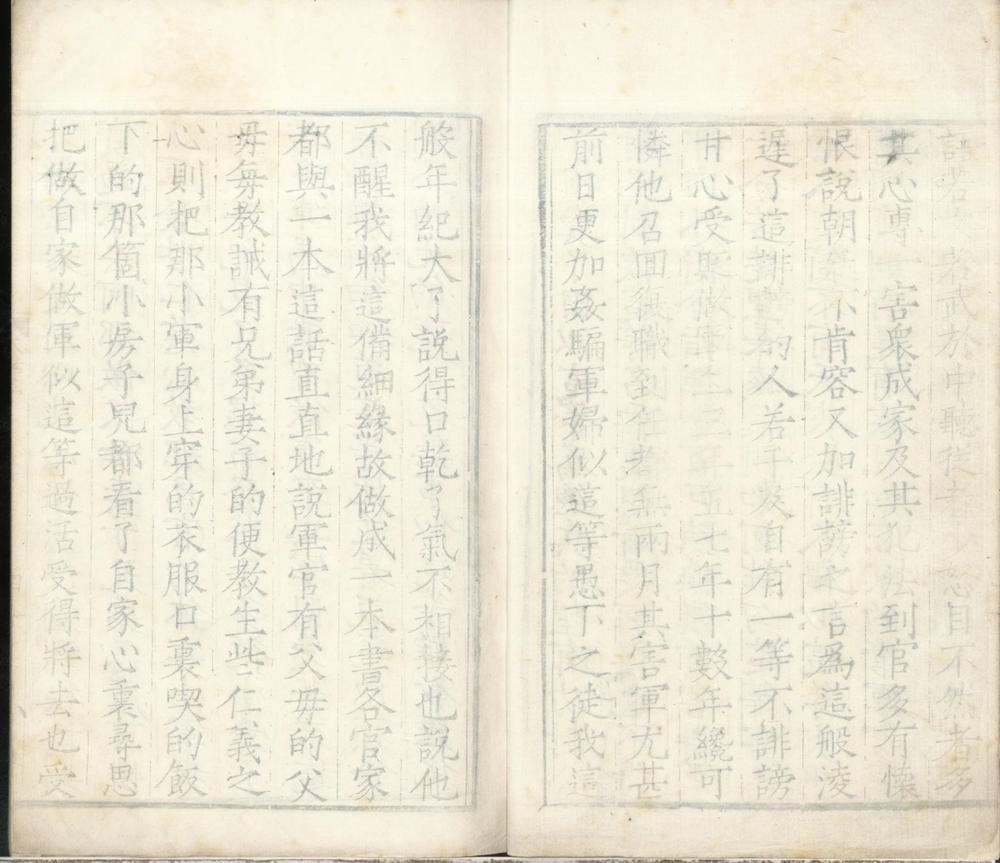 語言 者武於中聽從者 怒目不然者多
其心專一害衆成家及其犯法到官多有懷
恨說朝 不肯容又加誹謗之言爲這般凌
遲了這誹 的人若干及自有一等不誹謗
甘心受 做軍二三年五七年十數年纔可
憐他召回復職到任者無兩月其害軍尤甚
前日更加姦騙軍婦似這等愚下之徒我這
般年紀大了說得口乾了氣不相接也說他
不醒我將這備細緣故做成一本書各官家
都與一本這話直直地說軍官有父母的父
母每教誡有兄弟妻子的便教生些仁義之
心則把那小軍身上穿的衣服口裏喫的飯
下的那箇小房子兒都看了自家心裏尋思
把做自家做軍似這等過活受得將去也受